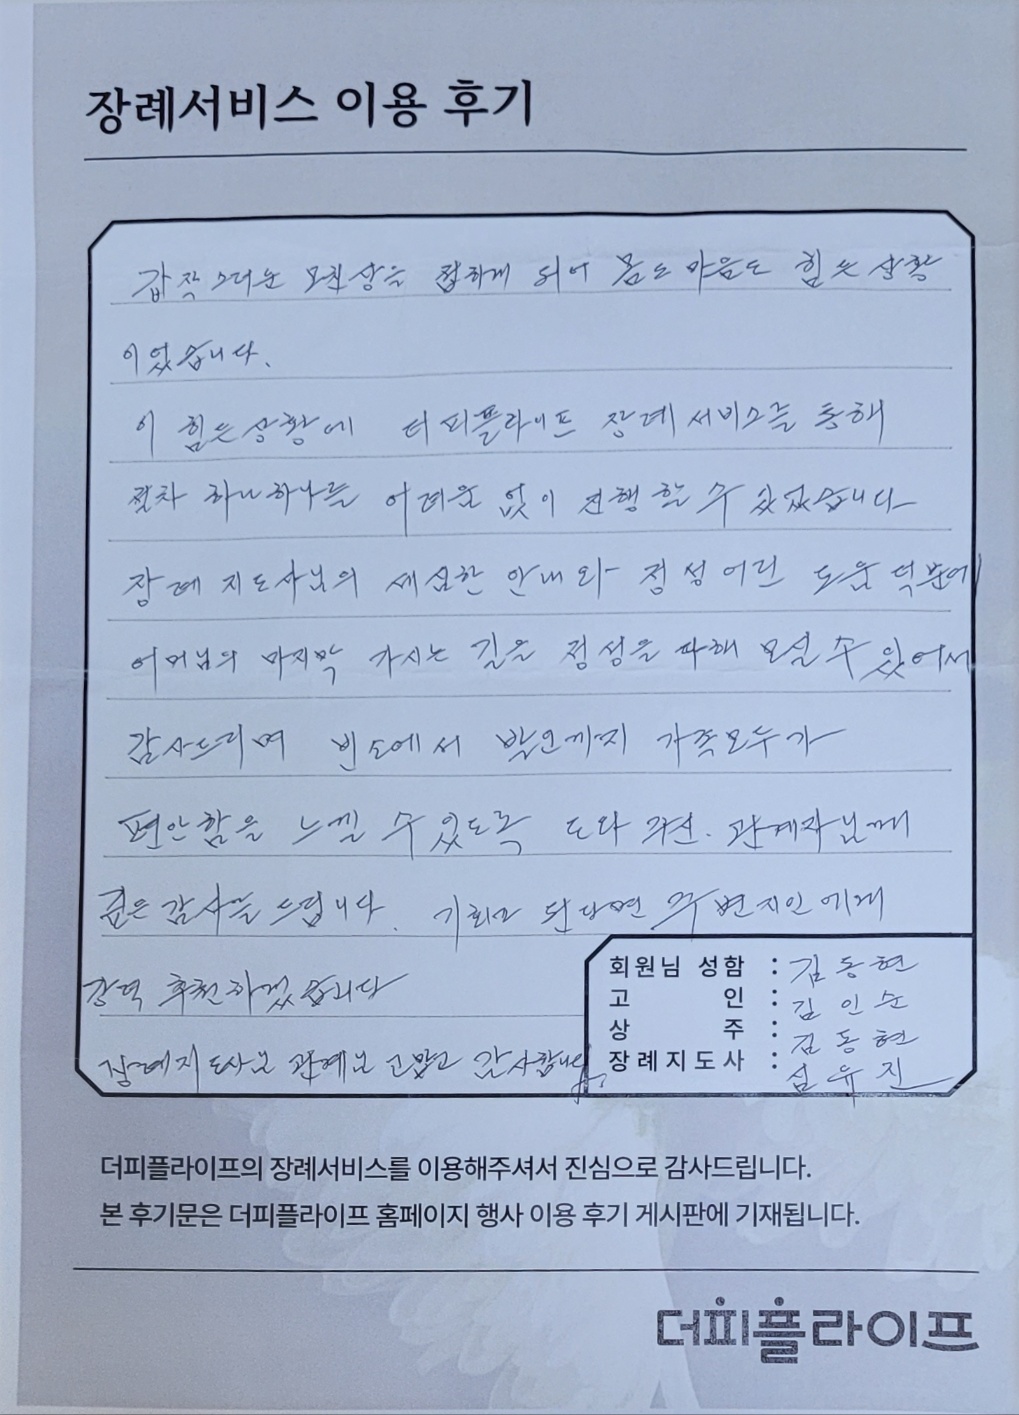 장례서비스 이용 후기
갑작스러운 모친상을 접하게 되어 몸도 마음도 힘든 상황
이었습니다.
이 힘든 상황에 더피플라이프 장례 서비스를 통해
절차 하나하나를 어려움 없이 진행 할 수 있었습니다
장례 지도사님의 세심한 안내와 정성어린 도움 덕분에
어머님의 마지막 가시는 길을 정성을 다해 모실 수 있어서
감사드리며 빈소에서 발인까지 가족모두가
편안함을 느낄 수 있도록 도와 주신. 관계자님께
깊은 감사를 드립니다. 기회가 된다면 주변지인에게
강력 추천하겠습니다
장례지도사님 관계자님 고맙고 감사합니다.
회원님 성함 : 김동현
고 인 : 김인순
상 주 : 김동현
장례지도사 : 심유진
더피플라이프의 장례서비스를 이용해주셔서 진심으로 감사드립니다.
본 후기문은 더피플라이프 홈페이지 행사 이용 후기 게시판에 기재됩니다.
더피플라이프